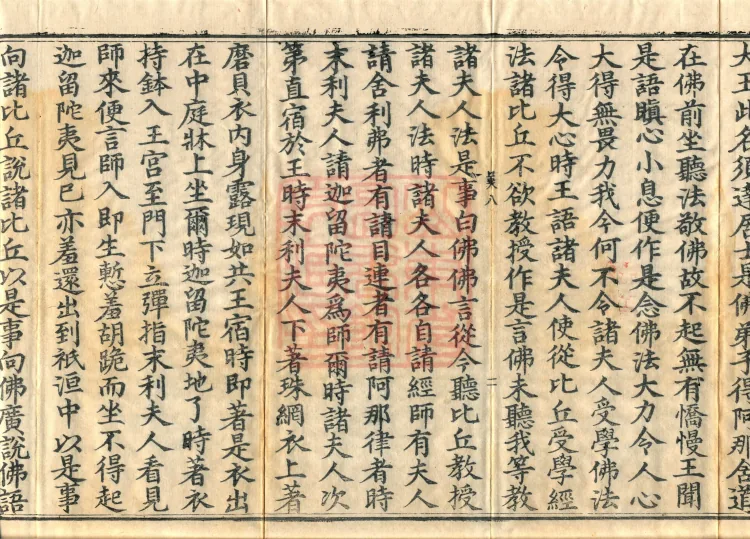 大王此名須達居士是佛弟子得阿那舍道
在佛前坐聽法敬佛故不起無有憍慢王聞
是語瞋心小息便作是念佛法大力令人心
大得無畏力我今何不令諸夫人受學佛法
令得大心時王語諸夫人使從比丘受學經
法諸比丘不欲教授作是言佛未聽我等教
二
諸夫人法是事白佛佛言從今聽比丘教授
諸夫人法時諸夫人各各自請經師有夫人
請舍利弗者有請目連者有請阿那律者時
末利夫人請迦留陀夷爲師爾時諸夫人次
第直宿於王時末利夫人下著珠網衣上著
磨貝衣內身露現如共王宿時即著是衣出
在中庭牀上坐爾時迦留陀夷地了時著衣
持鉢入王宮至門下立彈指末利夫人看見
師來便言師入即生慙羞胡跪而坐不得起
迦留陀夷見已亦羞還出到祇洹中以是事
向諸比丘說諸比丘以是事向佛廣說佛語